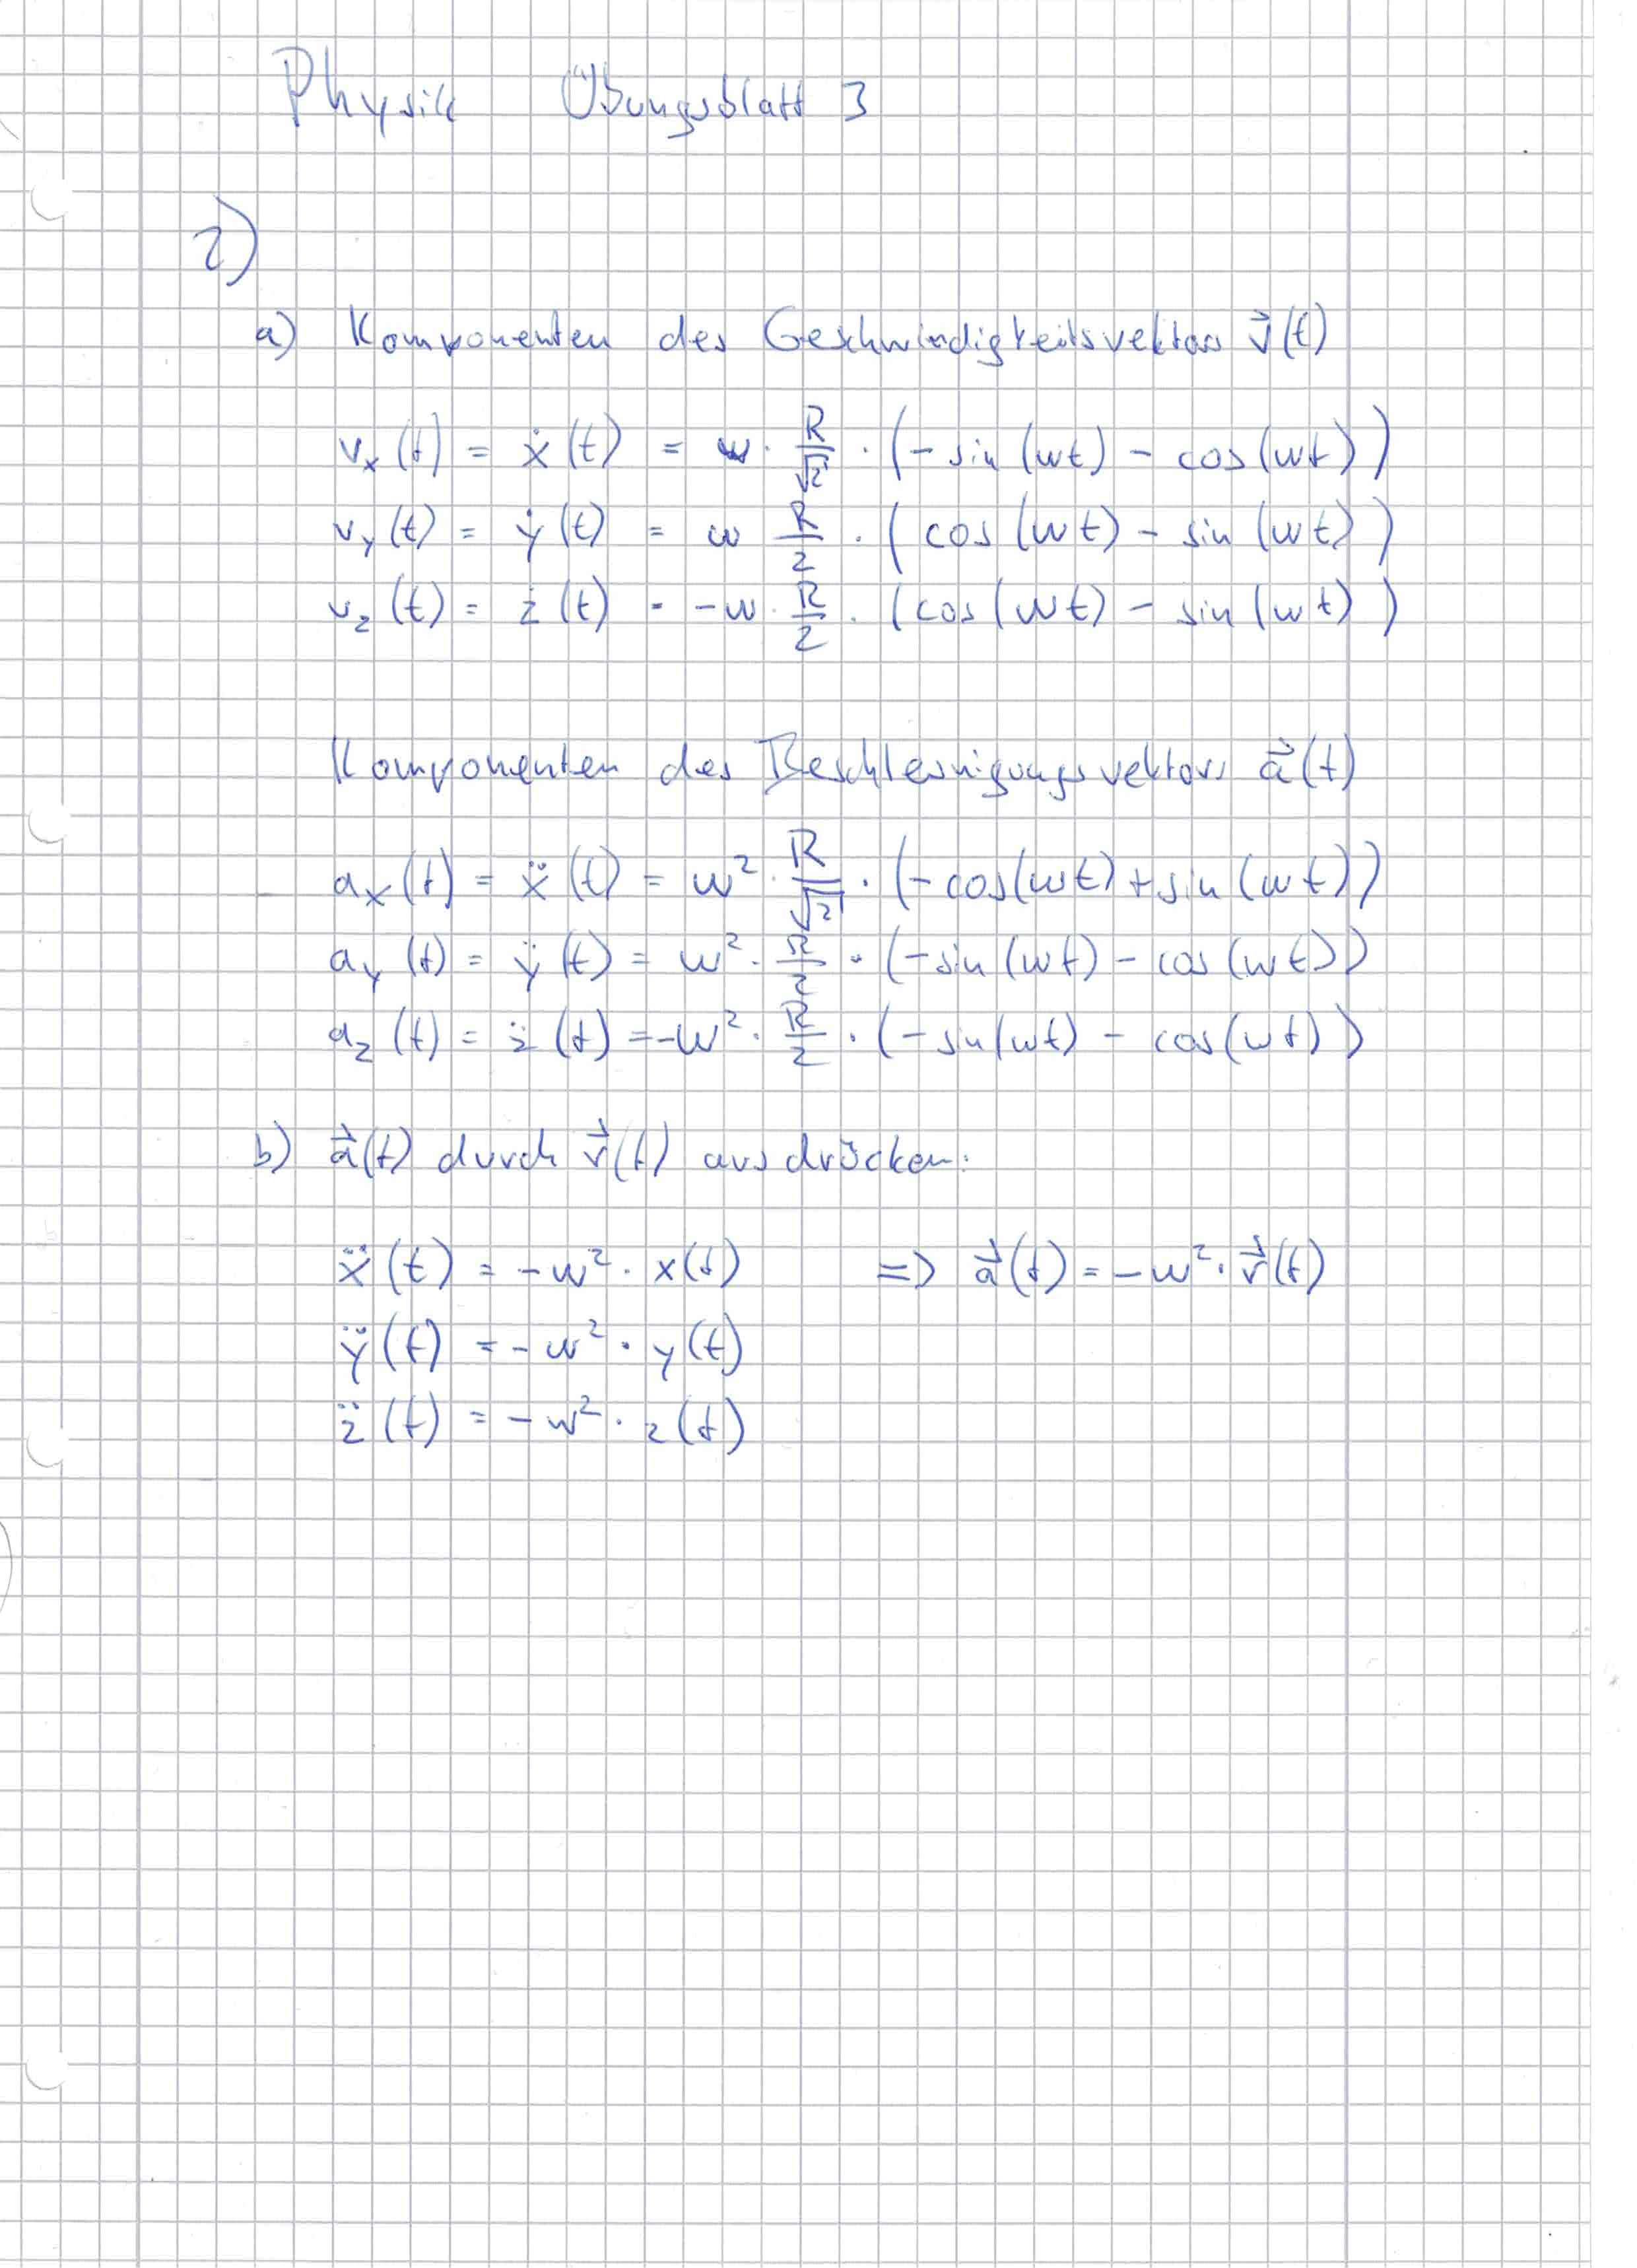 Physik Übungsblatt 3
2)
a) Komponenten des Geschwindigkeitsvektors v⃗(t)
vₓ(t) = ẋ(t) = ω · R/√2 · (-sin(ωt) - cos(ωt))
v_y(t) = ẏ(t) = ω R/2 · (cos(ωt) - sin(ωt))
v_z(t) = ż(t) = -ω · R/2 · (cos(ωt) - sin(ωt))
Komponenten des Beschleunigungsvektors a⃗(t)
aₓ(t) = ẍ(t) = ω² · R/√2 · (-cos(ωt) + sin(ωt))
a_y(t) = ÿ(t) = ω² · R/2 · (-sin(ωt) - cos(ωt))
a_z(t) = z̈(t) = -ω² · R/2 · (-sin(ωt) - cos(ωt))
b) a⃗(t) durch r⃗(t) ausdrücken:
ẍ(t) = -ω² · x(t) => a⃗(t) = -ω² · r⃗(t)
ÿ(t) = -ω² · y(t)
z̈(t) = -ω² · z(t)